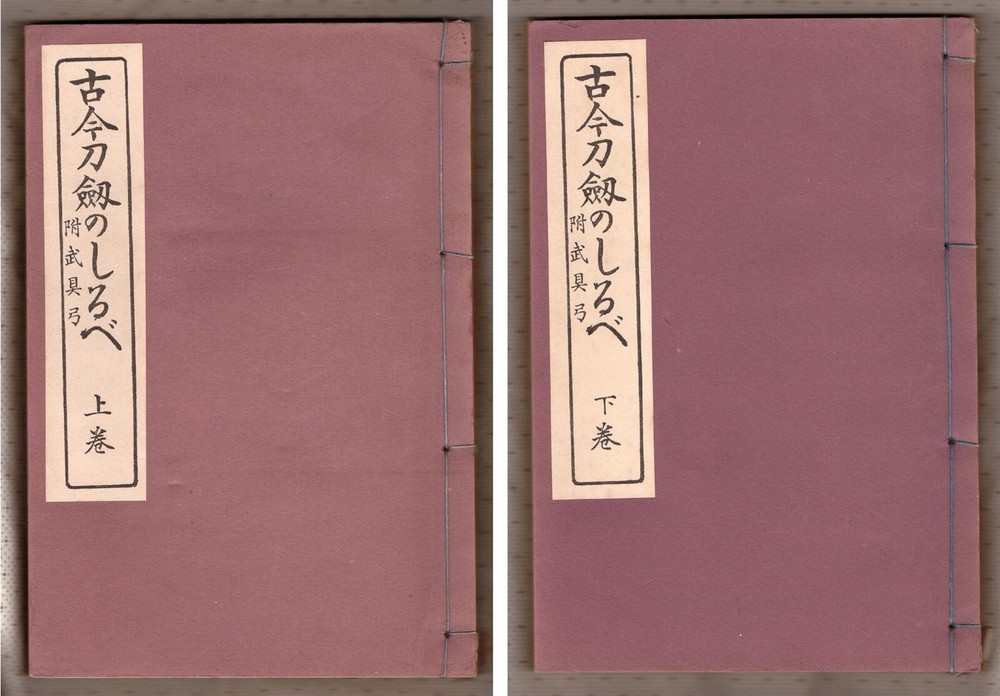 古今刀劔のしるべ
附武具弓
上巻
古今刀劔のしるべ
附武具弓
下巻